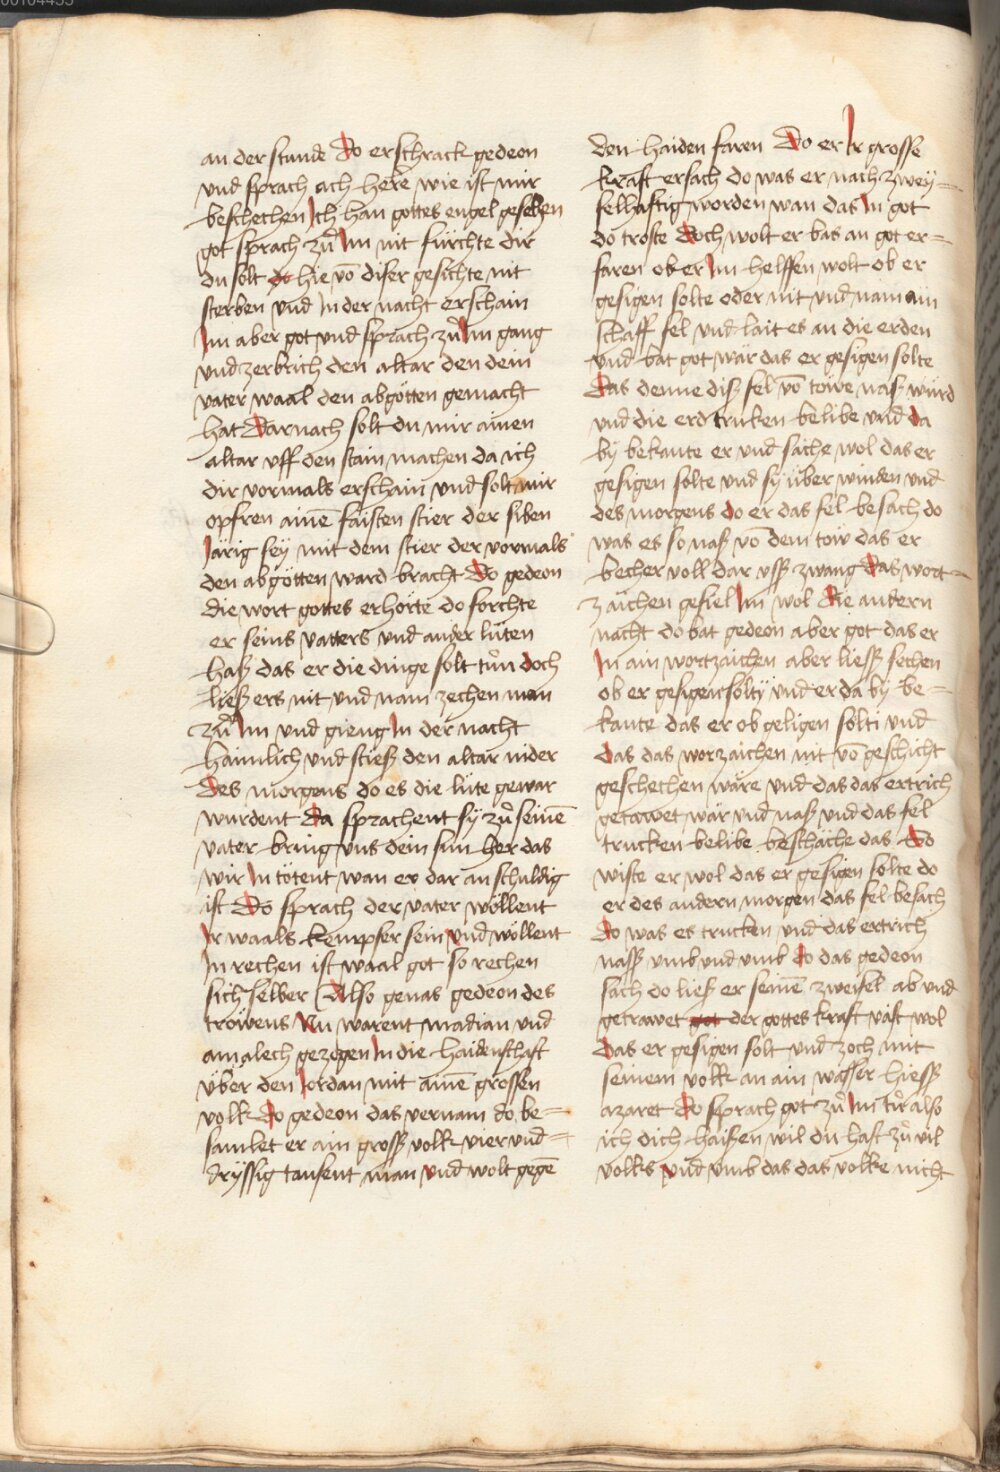 an der stunde Do erschrack gedeon
vnd sprach ach here wie ist mir
beschechen Ich han gottes engel gesehen
got sprach zů Im nit fürchte dir
du solt do hie vō diser gesichte nit
sterben vnd In der nacht erschain
Im aber got vnd sprach zů Im gang
vnd zerbrich den altar den dein
vater waal den abgötten gemacht
hat Darnach solt du mir ainen
altar vff den stain machen da ich
dir vormals erschain vnd solt mir
opfren ainē faisten stier der siben
Järig sey mit dem stier der vormals
den abgötten ward bracht Do gedeon
die wort gottes erhorte do forchte
er seins vatters vnd ander lüten
hasz das er die dinge solt tůn doch
liesz ers nit vnd nam zechen man
zů Im vnd gieng In der nacht
haimlich vnd stiesz den altar nider
Des morgens do es die lüte gewar
wurdent Da sprachent sy zů seinē
vater bring vns dein sun her das
wir In tötent wan er dar an schuldig
ist Do sprach der vater wöllent
Ir waals kempfer sein vnd wöllent
In rechen ist waal got so rechen
sich selber Also genas gedeon des
tröwens Nu warent madian vnd
amalech gezogen In die haidenschaft
über den Jordan mit ainē grossen
volk Do gedeon das vernam do be=
samlet er ain grossz volk vier vnd=
dryssig tausent man vnd wolt gegē
den haiden faren Do er Ir grosse
kraft ersach do was er nach zwey=
felhaftig worden wan das In got
do troste Doch wolt er bas an got er=
faren ob er Im helffen wolt ob er
gesigen solte oder nit vnd nam ain
schaff fel vnd lait es an die erden
vnd bat got wär das er gesigen solte
Das denne disz fel vō towe nasz würd
vnd die erd truken belibe vnd da
by bekante er vnd sache wol das er
gesigen solte vnd sy über winden vnd
des morgens do er das fel besach do
was es so nasz vō dem tow das er
becher voll dar vsz zwang Das wort=
zaichen gefiel Im wol Die andern
nacht do bat gedeon aber got das er
In ain wortzaichen aber liessz sechen
ob er gesigen sölty vnd er da by be=
kante das er ob geligen sölti vnd
Das das worzaichen nit vō geschicht
geschechen wäre vnd das das ertrich
getawet wär vnd nasz vnd das fel
trucken belibe beschäche das So
wiste er wol das er gesigen solte do
er des andern morgen das fel besach
do was es trucken vnd das ertrich
nassz vmb vnd vmb do das gedeon
sach do liesz er seinē zweifel ab vnd
getrawet got der gottes kraft väst wol
Das er gesigen solt vnd zoch mit
seinem volk an ain wasser hiessz
azaret Do sprach got zů Im tů also
ich dich haiszen wil du hast zů vil
volks vnd vmb das das volke nicht